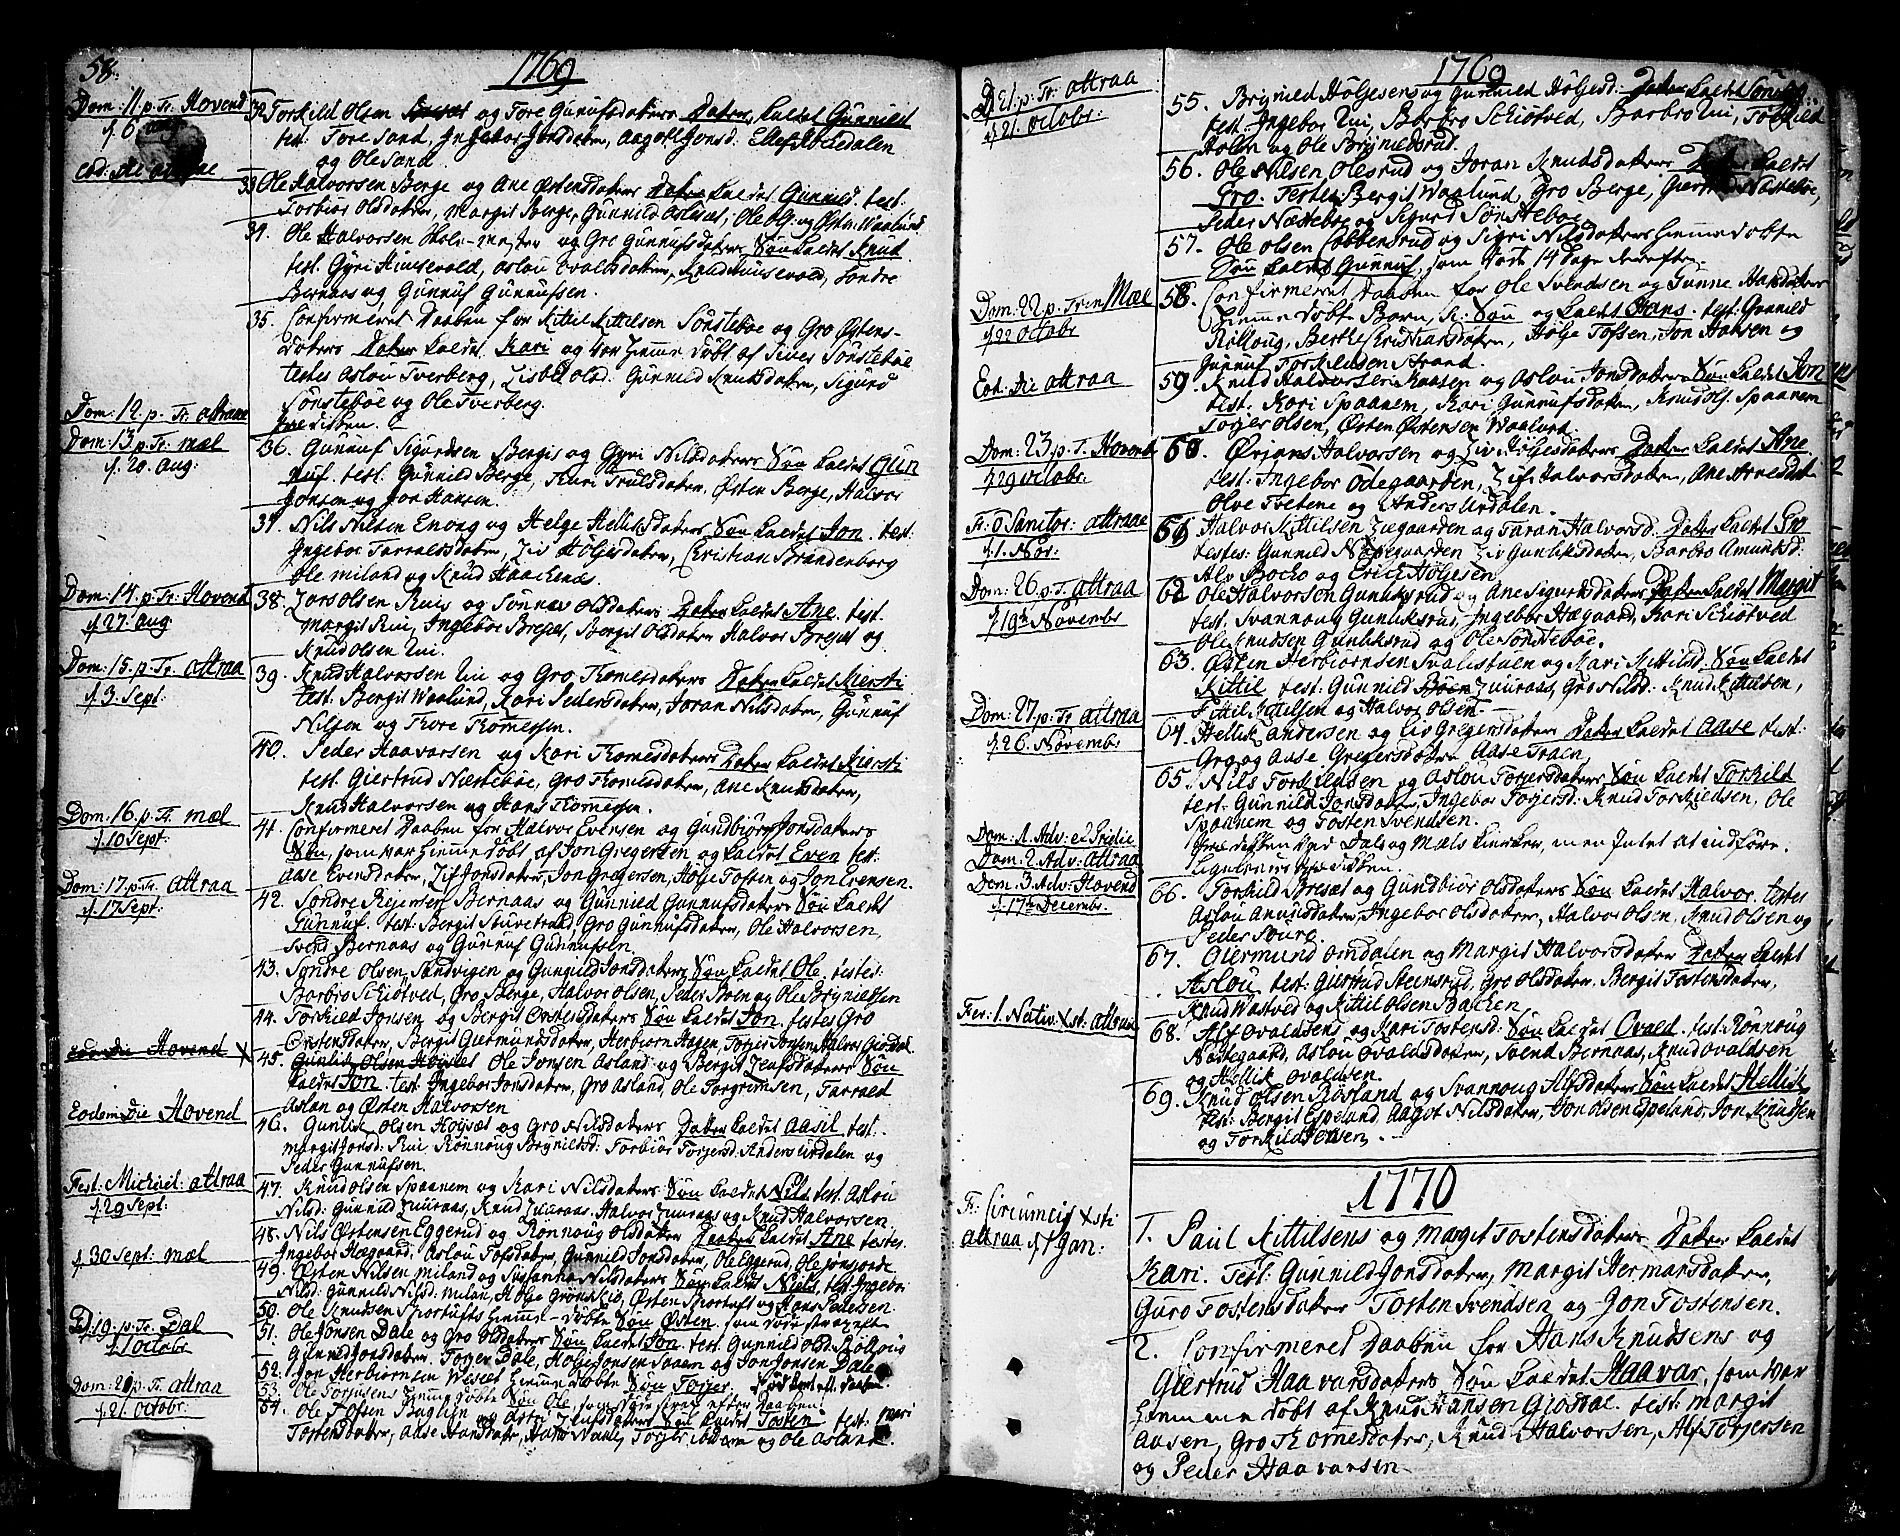 58.
1769
Dom: 11. p. Tr. Hovend
d. 6 aug
eod. die attraae
32. Torkild Olsen og Tore Gunufsdaters Dater kaldet Gunnild
test. Tore Sand, Ingebor Jonsdaten, Aagot Jonsd. Ellef Aasedalen
og Ole Sand.
33. Ole Halvorsen Berge og Ane Østensdaters Dater kaldet Gunnild. test.
Torbiør Olsdaten, Margit Berge, Gunnild
34. Ole Halvorsen Skole-mester og Gro Gunnufsdaters Søn kaldet Knud
test. Gyri Hinsevold, Aslou Ovalsdaten, Knud Hinsevold, Sondre
Bernaas og Gunnuf Gunnufsen.
35. Confirmeret Daaben for Kittil Kittilsen Sønsteboe og Gro Østens-
daters Dater kaldet Kari og var hiemme døbt af Sines Sønsteboe
testes Aslou Tverberg, Lisbet Olsd. Gunnild Knudsdaten, Sigurd
Sønsteboe og Ole Tverberg.
Dom: 12. p. Tr. attraae
Prædiken
Dom: 13 p. Tr: mæl
d. 20. aug:
36. Gunnuf Sigurdsen Bergis og Gyri Nilsdaters Søn kaldet Gun
nuf. test. Gunnild Berge, Kari Trulsdaten. Østen Berge, Halvor
Jonsen og Jon Hansen.
37. Nils Nilsen Enong og Helge Hellisdaters Søn kaldet Jon. test:
Ingeboe Tarraldsdaten, Liv Høljesdaten, Christian Brandenborg
Ole Miland og Knud Haackenæs.
Dom: 14. p. Tr: Hovend
d. 27 aug
38. Lars Olsen Ruis og Sønnev Olsdaters Dater kaldet Ane. test.
Margit Rui, Ingeboe Bresæt, Bergit Olsdaten Halvor Bresæt og
Knud Olsen Rui.
Dom: 15. p. Tr. attraa
d. 3 Sept:
39. Knud Halvorsen Rui og Gro Tomesdaters Dater kaldet Kiersti
test. Bergit Waalund, Kari Pedersdaten, Joran Nilsdaten, Gunnuf
Nilsen og Tore Tommesen.
40. Peder Haavarsen og Kari Tomesdaters Dater kaldet Kiersti
test. Giertrud Næsteboe, Gro Tomesdaten, Ane Knudsdaten,
Knud Halvorsen og Hans Tommesen.
Dom: 16. p. Tr. mæl
d. 10 Sept:
41. Confirmeret Daaben for Halvor Evensen og Gundbiør Jonsdaters
Søn, som var hiemme døbt af Jon Gregersen og kaldet Even test:
Aase Evensdaten, Liv Jonsdaten, Jon Gregersen, Holje Tofsen og Jon Evensen.
Dom: 17. p. Tr. attraa
d. 17 Sept:
42. Sondre Reiersen Bernaas og Gunnild Gunnufsdaters Søn kaldet
Gunnuf. test. Bergit Gro Gunnufsdaten, Ole Halvorsen,
Svend Bernaas og Gunnuf Gunnufsen.
43. Syndre Olsen Sandvigen og Gunnild Jonsdaters Søn kaldet Ole. testes:
Barbro Schiøtved, Gro Berge, Halvor Olsen, Peder Boen og Ole Brynildsen
44. Torkild Jonsen og Bergit Østensdaters Søn kaldet Jon. testes Gro
Østensdaten, Bergit Giermundsdaten, Herbiørn Hagen, Torjer Jonsen, Halvor Giosdal
eod: die Hovend X
45. Gunlik Olsen Høiset Ole Jonsen Asland og Bergit Leufsdaters Søn
kaldet Jon. test. Ingebor Jonsdaten, Gro Asland, Ole Torgrimsen, Tarrald
Aslan og Østen Halvorsen
Eodem die Hovend
46. Gunlik Olsen Høiset og Gro Nilsdaters Dater kaldet Aasil test:
Margit Jonsd: Rui Rønnoug Brynildsd: Torbiør Torjersd. Anders Urdalen og
Peder Gunnufsen.
Fest: Michael: attraa
d. 29 Sept:
47. Knud Olsen Spaanem og Kari Nilsdaters Søn kaldet Nils test. Aslou
Nilsd: Gunnild Luuraas, Knud Luuraas, Halvor Luuraas og Knud Halvorsen.
d. 30 Sept: mæl
48. Nils Østensen Eggerud og Rønnoug Olsdaters Daater kaldet Ane testes.
Ingebor Hægaard, Aslou Tofsdaten, Gunnild Jonsdaten, Ole Eggerud, Ole Jonsjorde
49. Østen Nilsen Miland og Susanna Nilsdaters Søn kaldet Niels, test: Ingebor
Nilsd: Gunnild Nilsd: Milan, Holje Grønskeo, Østen Skortuft og Hans Pedersen.
50. Ole Knudsen Skortufts hiemme-døbte Søn Østen, som døde strax eft
D: 19. p. Tr. Dal
d. 1 Octobr
51. Ole Jonsen Dale og Gro Olsdaters Søn kaldet Jon test. Gunnild Olsd. Rolloug
Gunnild Jonsdaten, Torjer Dale, Holje Jonsen Saaem og Jon Jonsen Dale
52. Jon Herbiørnsen Vesæt hiemme døbte Søn Torjer.
53. Ole Torjusens hiemme døbte Søn Ole, som døde strax efter Daaben
Dom: 21 p. Tr. attraa
d. 21. octobr:
54. Ole Tofsen Baglien og Astri Leufsdaters Søn kaldet Tosten test. Mari
Tostensdaten, Aase Hansdaten, Torjer ibidem og Ole Aslank.
1769
D: 21. p. Tr. attraa
d. 21. octobr:
55. Brynild Høljesens og Gunnild Høljesd. Dater kaldet Sønneva.
test. Ingebor Rui, Barbro Schiøtved, Barbro Rui, Torkild
Holen og Ole Brynildsrud.
56. Ole Nilsen Olesrud og Joran Knudsdaters Dater kaldet
Gro. Testes Bergit Waalund, Gro Berge, Giertrud Næsteboe,
Peder Næsteboe og Sigurd Sønsteboe.
57. Ole Olsen Cobbensrud og Sigri Nilsdaters hiemme døbte
Søn kaldet Gunnuf, som døde 14 Dage derefter.
Dom: 22 p. Tr. in Mæl
d. 22 octobr
58. Confirmeret Daaben for Ole Svendsen og Gunne Hansdaters
hiemme døbte Barn, N: Søn og kaldet Hans. test. Gunnild
Rolloug, Berthe Kristiansdaten, Holje Tofsen, Jon Hansen og
Gunnuf Torkildsen Strand.
Eod: die attraa
59. Knud Halvorsen Kaasen og Aslou Jonsdaters Søn kaldet Jon
test. Kari Spaanem, Kari Gunnufsdaten, Knud Ols. Spaanem
Torjer Olsen, Østen Østensen Waalund.
Dom: 23. p. T. Hovend
d. 29 octobr.
60. Ørjans Halvorsen og Liv Høljesdaters Dater kaldet Ane.
test. Ingebor Ødegaarden, Liv Halvorsdaten, Ane Arnesdat:
Olve Tvetene og Anders Urdalen.
F: O Sanctor: attraae
d. 1. Nov:
61. Halvor Kittilsen Liegaarden og Taran Halvorsd. Dater kaldet Gro
testes: Gunnild Nordgaarden Liv Gunliksdaten, Barbro Amundsd:
Alv Bocko og Erick Høljesen.
Dom: 26. p. T. attraa
d. 19de Novembr
62. Ole Halvorsen Gunliksrud og Ane Sigurdsdaters Dater kaldet Margit
test. Svannoug Gunliksrud, Ingebor Hægaard, Kari Schiøtved
Ole Knudsen Gunliksrud og Ole Sønsteboe.
63. Østen Herbiørnsen Svalestuen og Kari Kittilsd. Søn kaldet
Kittil test: Gunnild Luuraas, Gro Nilsd: Knud Kittilsen,
Kittil Kittilsen og Halvor Olsen.
Dom: 27. p. Tr. attraa
d. 26. Novembr
64. Hellik Andersen og Liv Gregersdaters Dater kaldet Aase test:
Gro og Aase Gregersdaten Aase Traen.
65. Nils Torkildsen og Aslou Torjersdaters Søn kaldet Torkild
test: Gunnild Jonsdaten, Ingebor Torjersd: Knud Torkildsen, Ole
Spaanem og Tosten Svendsen.
Dom: 1. Adv:
Dom: 2. Adv: attraa
Prædiken ved Dals og Mæls Kircker, men Intet at indføre.
Ligeledes
Dom. 3. Adv: Hovend
d. 17de Decembr.
66. Torkild Bresæt og Gundbiør Olsdaters Søn kaldet Halvor. testes
Aslou Amundsdaten, Ingebor Olsdaten, Halvor Olsen, Knud Olsen og
Peder Boure.
67. Giermund Omdalen og Margit Halvorsdaten Dater kaldet
Aslou test. Giertrud Steinsrud, Gro Olsdaten. Bergit Tostensdaten,
Knud Wastved og Kittil Olsen Backen
Fer: 1. Nativ. Xsti: attraae
68. Alf Ovaldsens og Kari Tostensd: Søn kaldet Ovald. test: Rønnoug
Nordgaard, Aslou Ovaldsdaten, Svend Bernaas, Knud Ovaldsen
og Hellik Ovaldsen.
69. Knud Olsen Skosland og Svannoug Alfsdaters Søn kaldet Hellik
test: Bergit Espeland, Aagot Nilsdaten, Jon Olsen Espeland, Jon Knudsen
og Torkild Jonsen.
1770
F: Circumcis Xsti
attraa d. 1 Jan:
1. Paul Kittilsens og Margit Tostensdaters Dater kaldet
Kari. Test: Gunnild Jonsdaten, Margit Hermansdaten,
Guro Tostensdaten Tosten Svendsen og Jon Tostensen.
2. Confirmeret Daaben for Hans Knudsens og
Giertrud Haavarsdaters Søn kaldet Haavar, som var
hiemme døbt af Knud Hansen Giosdal. test: Margit
Aasen, Gro Thomesdater, Knud Halvorsen, Alf Torjersen
og Peder Haavarsen